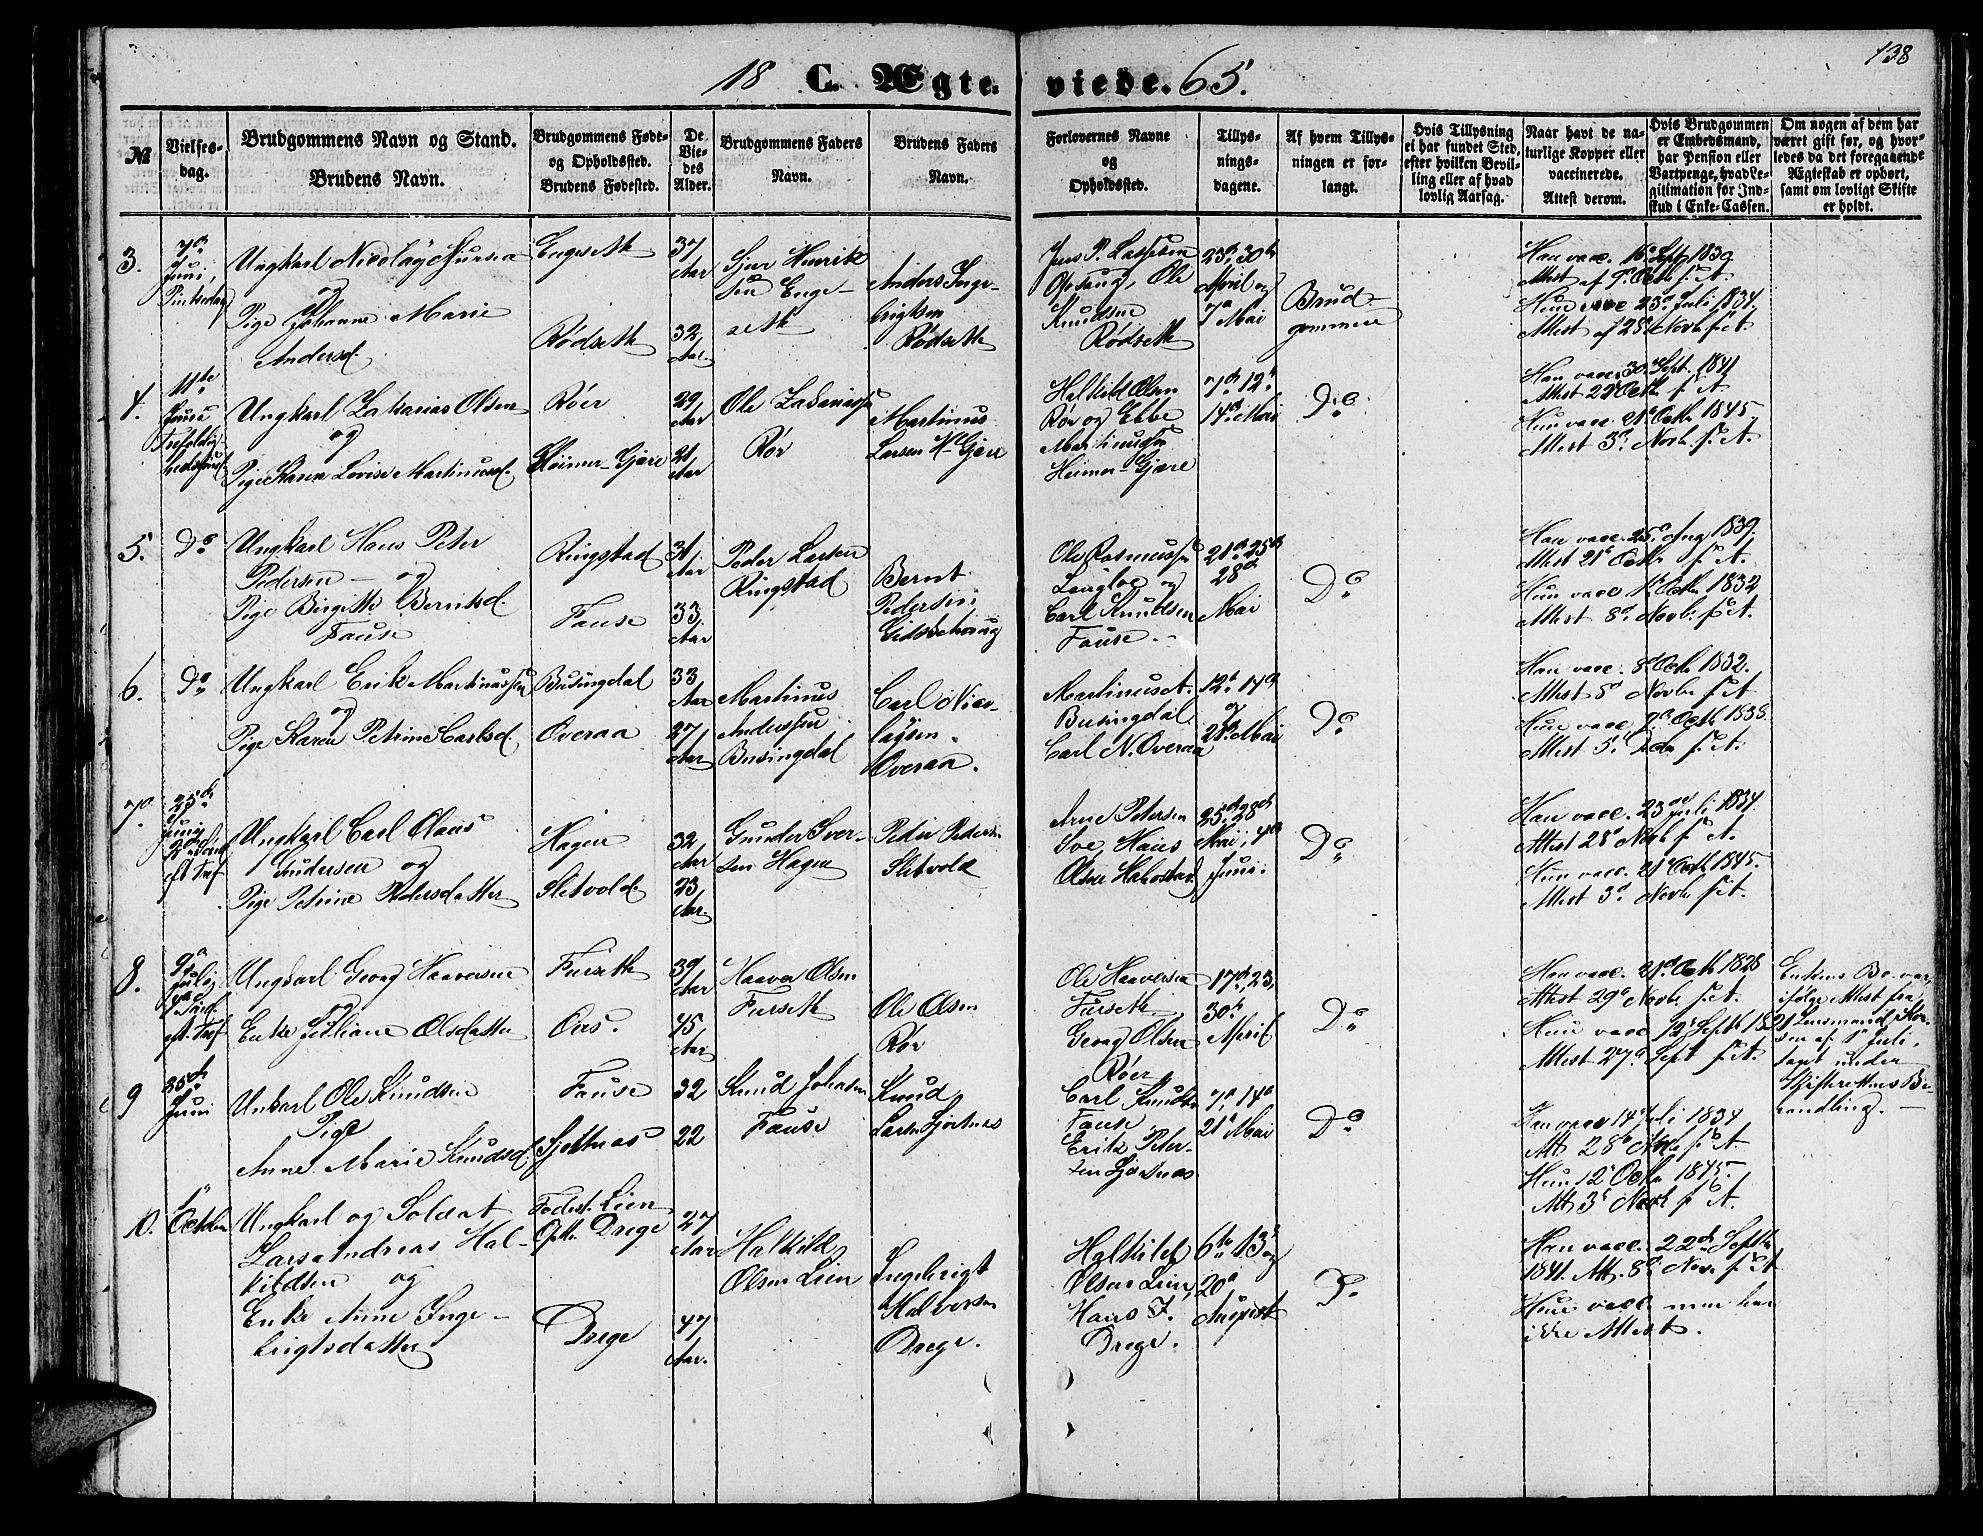 138
18 C. Ægte-viede. 65.
№
Vielses-dag.
Brudgommens Navn og Stand.
Brudens Navn.
Brudgommens Føde-
og Opholdssted.
Brudens Fødested.
De Vie-des Alder.
Brudgommens Faders
Navn.
Brudens Faders
Navn.
Forlovernes Navne
og
Opholdssted.
Tillys-
nings-
dagene.
Af hvem Tillys-
ningen er for-
langt.
Hvis Tillysning
ei har fundet Sted,
efter hvilken Bevil-
ling eller af hvad
lovlig Aarsag.
Naar havt de na-
turlige Kopper eller
vaccinerede.
Attest derom.
Hvis Brudgommen
er Embedsmand,
har Pension eller
Vartpenge, hvad Le-
gitimation for Ind-
skud i Enke-Cassen.
Om nogen af dem har
været gift før, og hvor-
ledes da det foregaaende
Ægteskab er ophørt,
samt om lovligt Skifte
er holdt.
3.
Juni,
Ungkarl Nicolay
og
Pige Johanne Marie
Andersd.
Engeseth
Rødseth
37
Aar
32
Aar
Sjur Henrik
sen Enge-
seth
Anders Inge-
brigtsen
Rødseth
Jens P.
Ole
Knudsen
Rødseth
23d, 30te
April og
7d Mai
Brud-
gommen
Han vacc. 16 Sept 1839
Attest af 9d Octb s. A.
Hun vacc 23d Juli 1834,
Attest af 28d Novb s. A.
4.
11te
Juni
Ungkarl Zakarias Olsen
og
Pige Karen Lovise Martinusd.
Røer
Heimer-Gjære
29
Aar
21
Aar
Ole
Rør
Martinus
Larsen H-Gjære
Halkild Olsen
Rør og Ebbe
Martinusen
Heimer-Gjære
7d, 12t
14d Mai
Do
Han vacc. 30 Sept. 1841
Attest 22d Octb s. A.
Hun vacc. 21d Octb 1845,
Attest 3d Novb. s. A.
5.
Do
Ungkarl Hans Peter
Pedersen og
Pige Birgitte Berntsd.
Fause
Ringstad
Fause
31
Aar
33
Aar
Peder Larsen
Ringstad
Bernt
Pedersen
Ole Rasmussen
og
Carl Knudsen
Fause.
21d, 25d
28d
Mai
Do
Han vacc. 25d Aug 1839,
Attest 21d Octb s. A.
Hun vacc 1 Octb 1832
Attest 8d Novb. s. A.
6.
Do
Ungkarl Erik Martinussen
og
Pige Karen Petrine Carlsd.
Busingdal
Overaa
33
Aar
27
Aar
Martinus
Anderssen
Busingdal
Carl Nico-
laysen
Overaa.
Martinus A.
Busingdal,
Carl N. Overaa
12t 17d
28d Mai
Do
Han vacc. 8d Octb 1832.
Attest 8d Novbr s. A
Hun vacc. 2d Octb 1838
Attest 5d s. A.
7.
25d
Juni
Ungkarl Carl Olaus
Gundersen og
Pige Petrine Pedersdatter
Hagen
Sletvold
32
Aar
23
Aar.
Gunder Iver-
sen Hagen
Peder Peders.
Sletvold
Arne Petersen
Hans
Olsen
25d, 28d
Mai, 4d
Juni.
Do
Han vacc. 23de Juli 1834.
Attest 28d Novb s. A.
Hun vacc. 21 Octb 1845.
Attest 3d Novb. s. A.
8.
9d
Julij
Ungkarl Georg Haaversen
og
Enke Juliane Olsdatter
Furseth
Aas.
39
Aar
45
Aar
Haaver Olsen
Furseth
Ole Olsen
Rør
Ole Haaversen
Furseth
Georg Olsen
Røer
17d, 23,
30te
April
Do
Han vacc. 21d Octb 1828
Attest 29d Novb s. A.
Hun vacc 12t Septb 1821
Attest 27d Sept s. A.
Enkens Bo var,
ifølge Attest fra
Lensmand
af 1 Juli,
tagt under
Skifterettens Be-
handling.
9
25d
Juni
Unkarl Ole Knudsen
Pige
Anne Marie Knudsd.
Fause
32
22
Knud Johasen
Fause
Knud
Larsen
Carl Knudsen
Fause
Erik Peter-
sen
7d, 14d
21d Mai
Do
Han vacc 14 Juli 1834
Att 28d Novb s. A.
Hun 12t Octb 1845.
Att 3d Novb s. A.
10.
1
Octbr
Ungkarl og Soldat
Lars Andreas Hal-
kildsen og
Enke Anne Inge-
brigtsdatter
Fødest. Lien
Oph. Drege
Drege
27
Aar
47
Aar.
Halkild
Olsen Lien
Ingebrigt
Halvorsen
Drege.
Halkild
Olsen Lien,
Hans I.
Drege.
6te 13d og
20d
August
Do
Han vacc. 22d Septb
1841. Att. 8d Novb s. A
Hun vacc men har
ikke Attest.